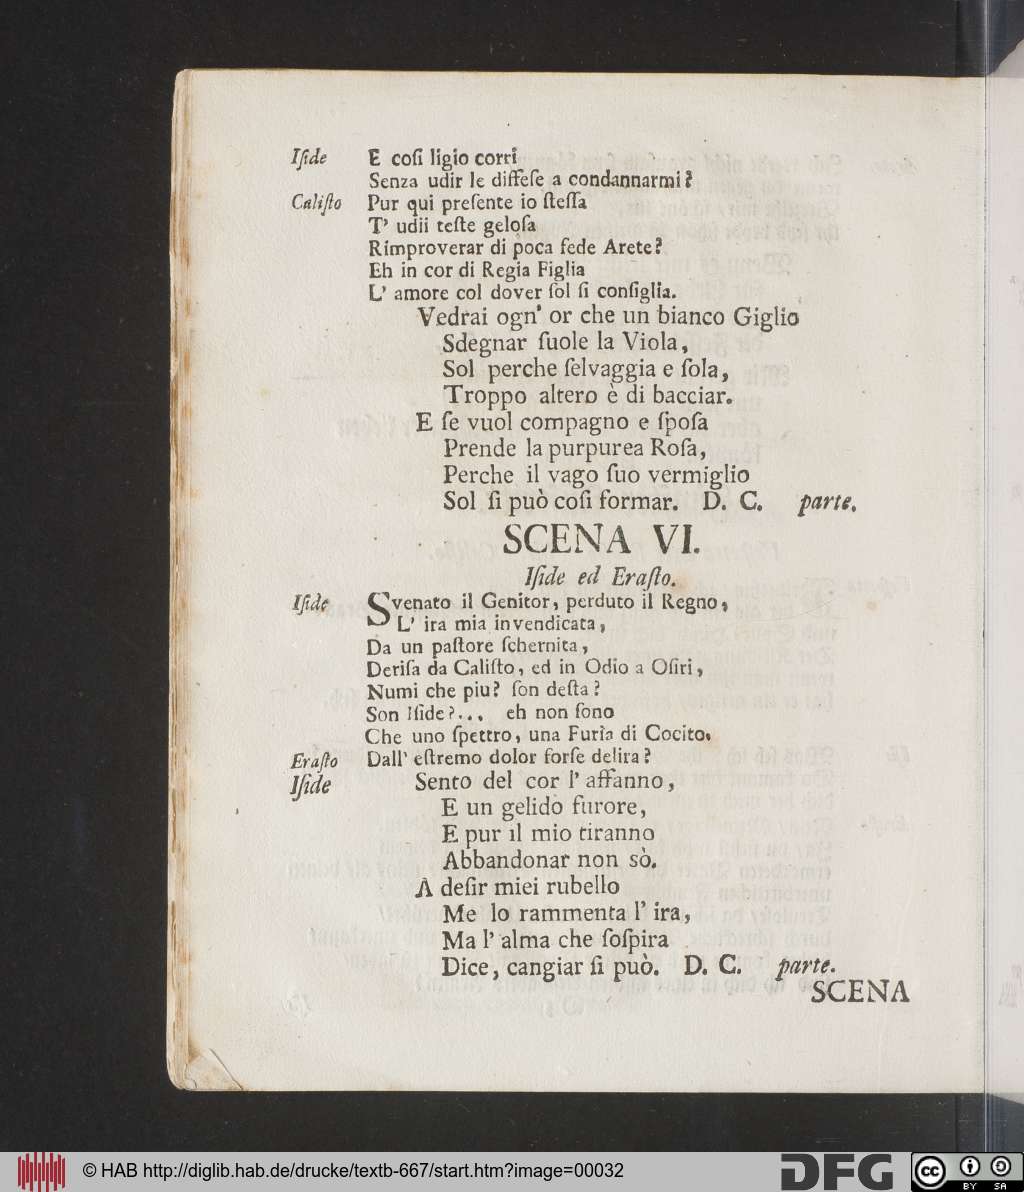 Iſide E coſi ligio corri
Senza udir le diffeſe a condannarmi?
Caliſto Pur qui preſente io ſteſſa
T' udii teſte geloſa
Rimproverar di poca fede Arete?
Eh in cor di Regia Figlia
L' amore col dover ſol ſi conſiglia.
Vedrai ogn' or che un bianco Giglio
Sdegnar ſuole la Viola,
Sol perche ſelvaggia e ſola,
Troppo altero è di bacciar.
E ſe vuol compagno e ſpoſa
Prende la purpurea Roſa,
Perche il vago ſuo vermiglio
Sol ſi può coſi formar. D. C. parte.
SCENA VI.
Iſide ed Eraſto.
Iſide Svenato il Genitor, perduto il Regno,
L' ira mia invendicata,
Da un paſtore ſchernita,
Deriſa da Caliſto, ed in Odio a Oſiri,
Numi che piu? ſon deſta?
Son Iſide?... eh non ſono
Che uno ſpettro, una Furia di Cocito.
Eraſto Dall' eſtremo dolor forſe delira?
Iſide Sento del cor l' affanno,
E un gelido furore,
E pur il mio tiranno
Abbandonar non sò.
A deſir miei rubello
Me lo rammenta l' ira,
Ma l' alma che ſoſpira
Dice, cangiar ſi può. D. C. parte.
SCENA
© HAB http://diglib.hab.de/drucke/textb-667/start.htm?image=00032
DFG
cc BY SA